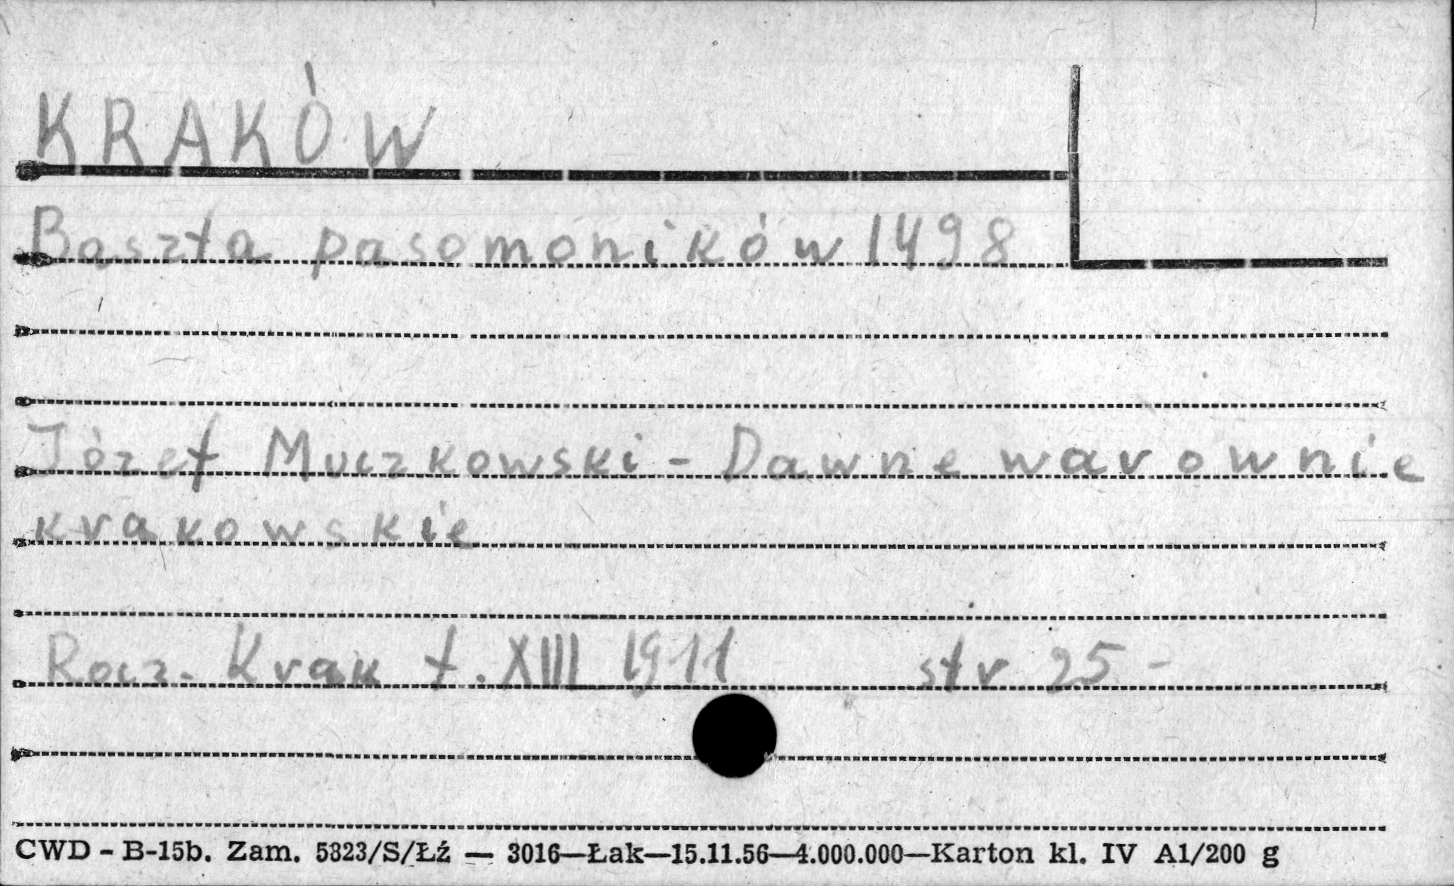 KRAKÓW
Baszta pasomoników 1498
Józef Muczkowski - Dawne warownie
krakowskie
Rocz. Krak t. XIII 1911 str 25 -
CWD - B-15b. Zam. 5323/S/Łź — 3016—Łak—15.11.56—4.000.000—Karton kl. IV A1/200 g